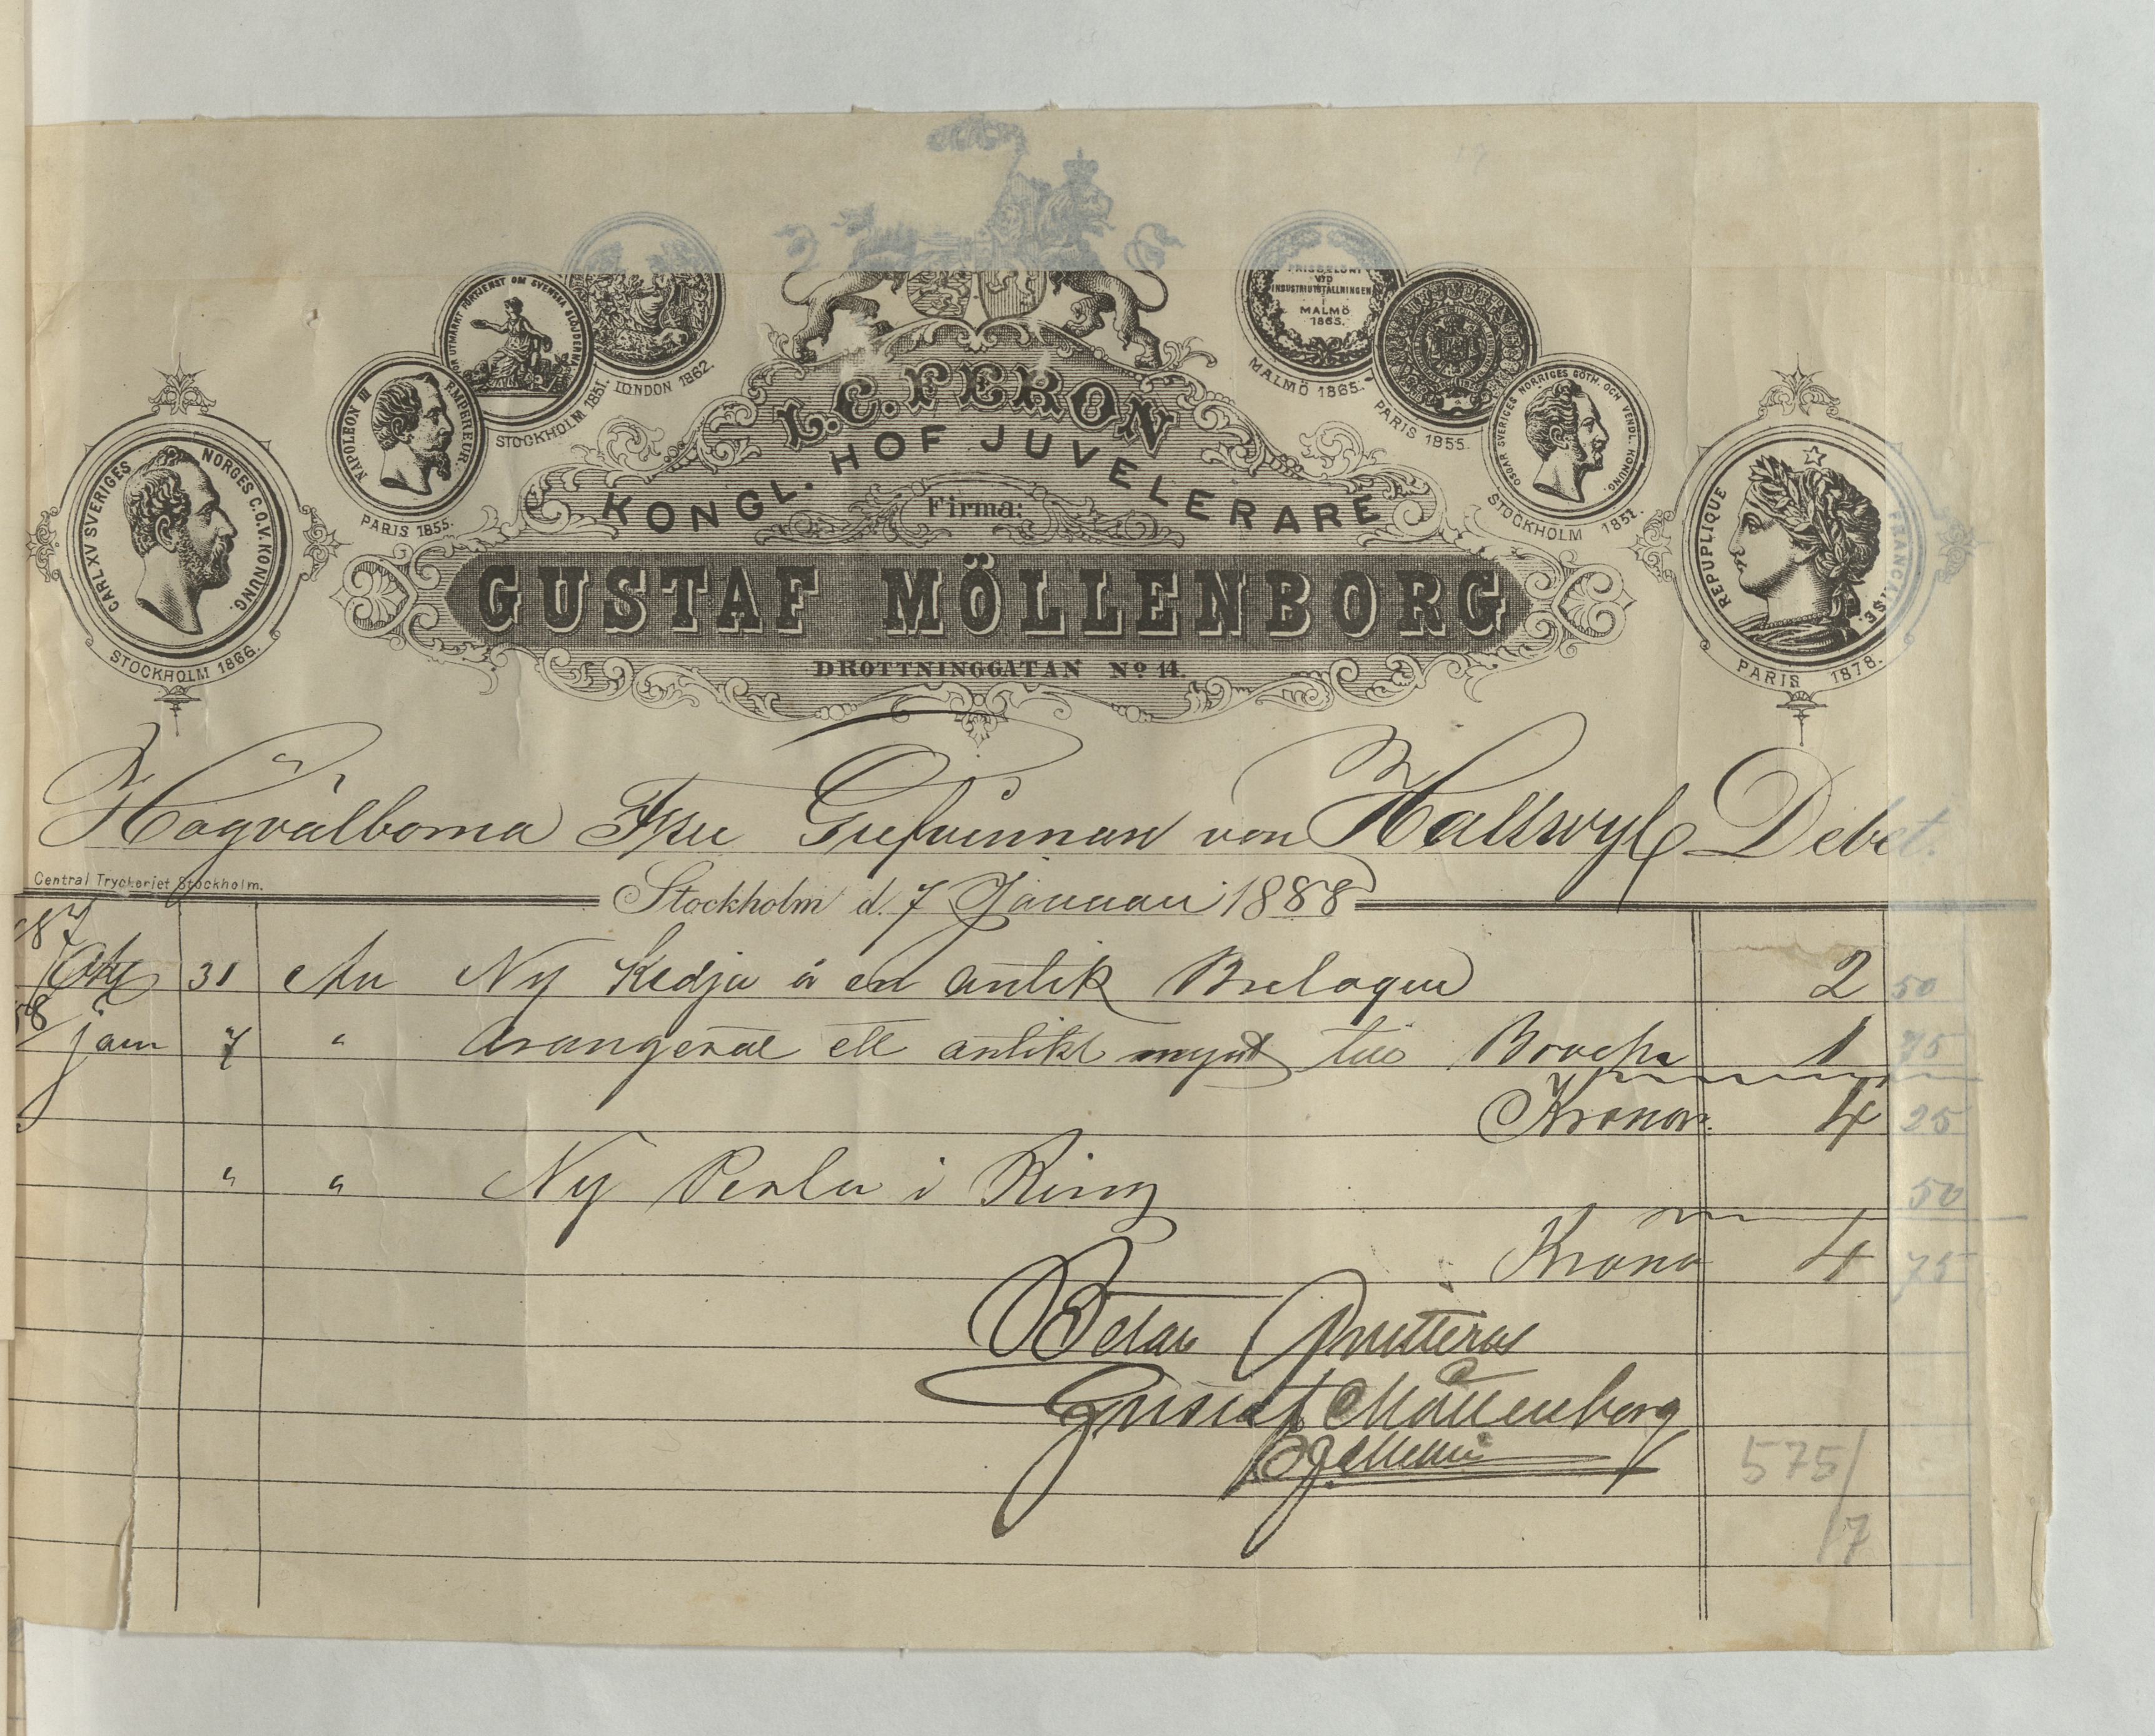 FÖR UTMÄRKT FÖRTJENST OM SVENSKA SLÖJDERNA
STOCKHOLM 1851.
LONDON 1862.
PRISBELÖNT
VID
INDUSTRIUTSTÄLLNINGEN
I
MALMÖ
1865.
MALMÖ 1865.
PARIS 1855.
NAPOLEON III EMPEREUR.
PARIS 1855.
OSCAR SVERIGES NORRIGES GÖTH. OCH VENDL. KONUNG.
STOCKHOLM 1851.
CARL XV SVERIGES NORGES G.O.V. KONUNG.
STOCKHOLM 1866.
REPUPLIQUE FRANCAISE.
PARIS 1878.
L.E. FERON
KONGL. HOF JUVELERARE
Firma:
GUSTAF MÖLLENBORG
DROTTNINGGATAN No 14.
Högvälborna Fru Grefvinnan von Hallwyl Debet.
Central Tryckeriet Stockholm.
Stockholm d. 7 Januari 1888
87
Okt 31 An Ny Kedja å en antik Breloque 2 50
88
jan 7 " Arangerat ett antikt mynt till Broche 1 75
Kronor 4 25
" " Ny Perla i Ring 50
Kronor 4 75
Betalt Qvitteras
Gustaf Möllenborg
575/
/7